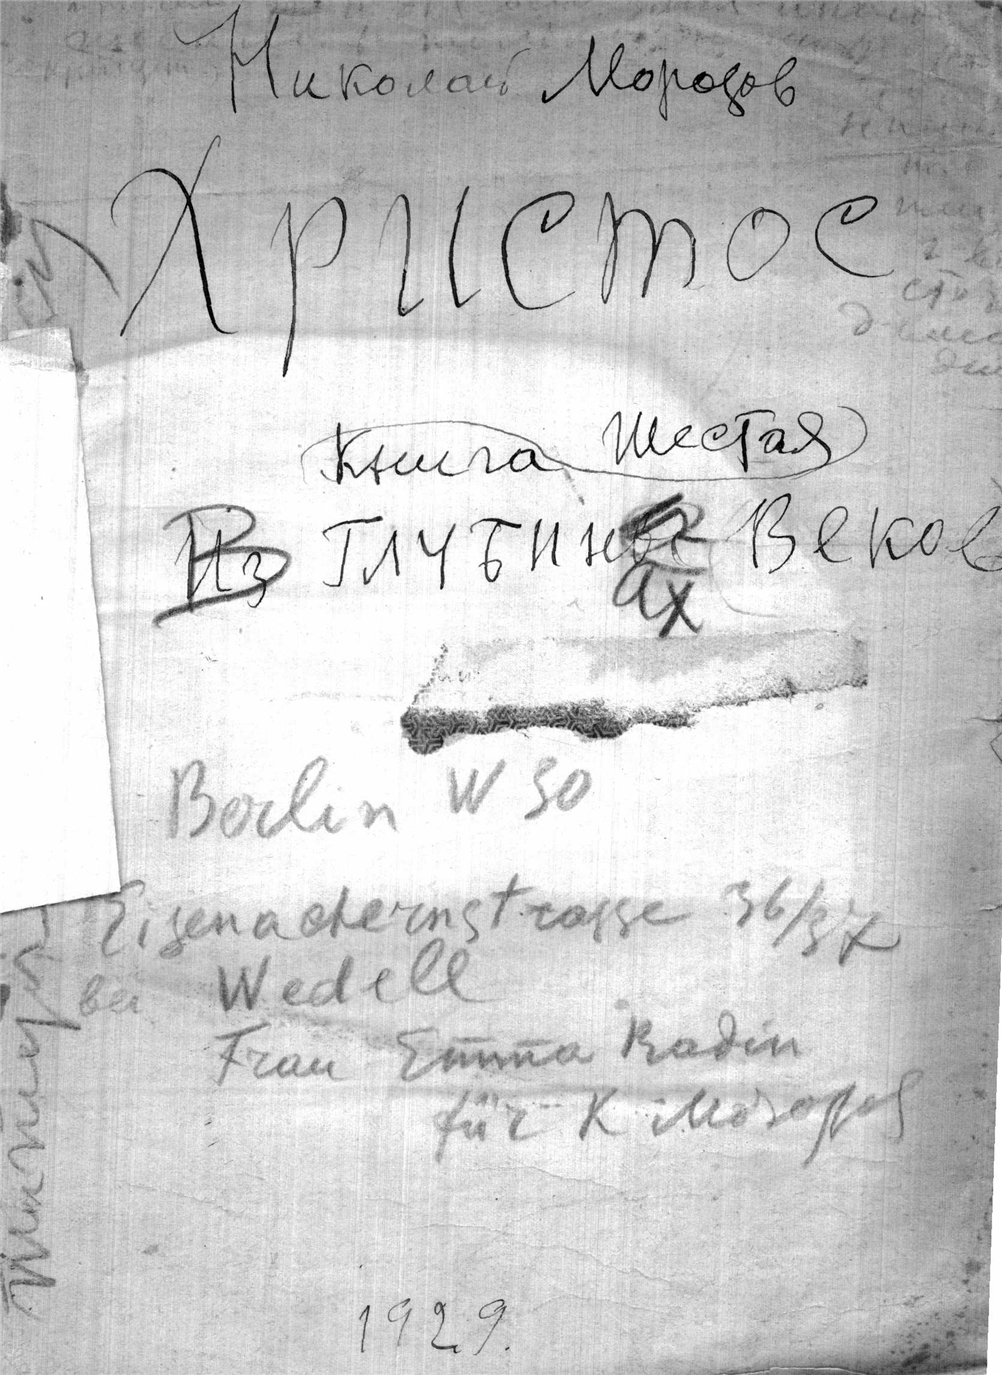 Николай Морозов
Христос
Книга Шестая
Из В глубины ах Веков
Berlin W 30
Eisenachernstrasse 36/37
bei Wedell
Frau Emma Radin
für K Morosoff
1929.